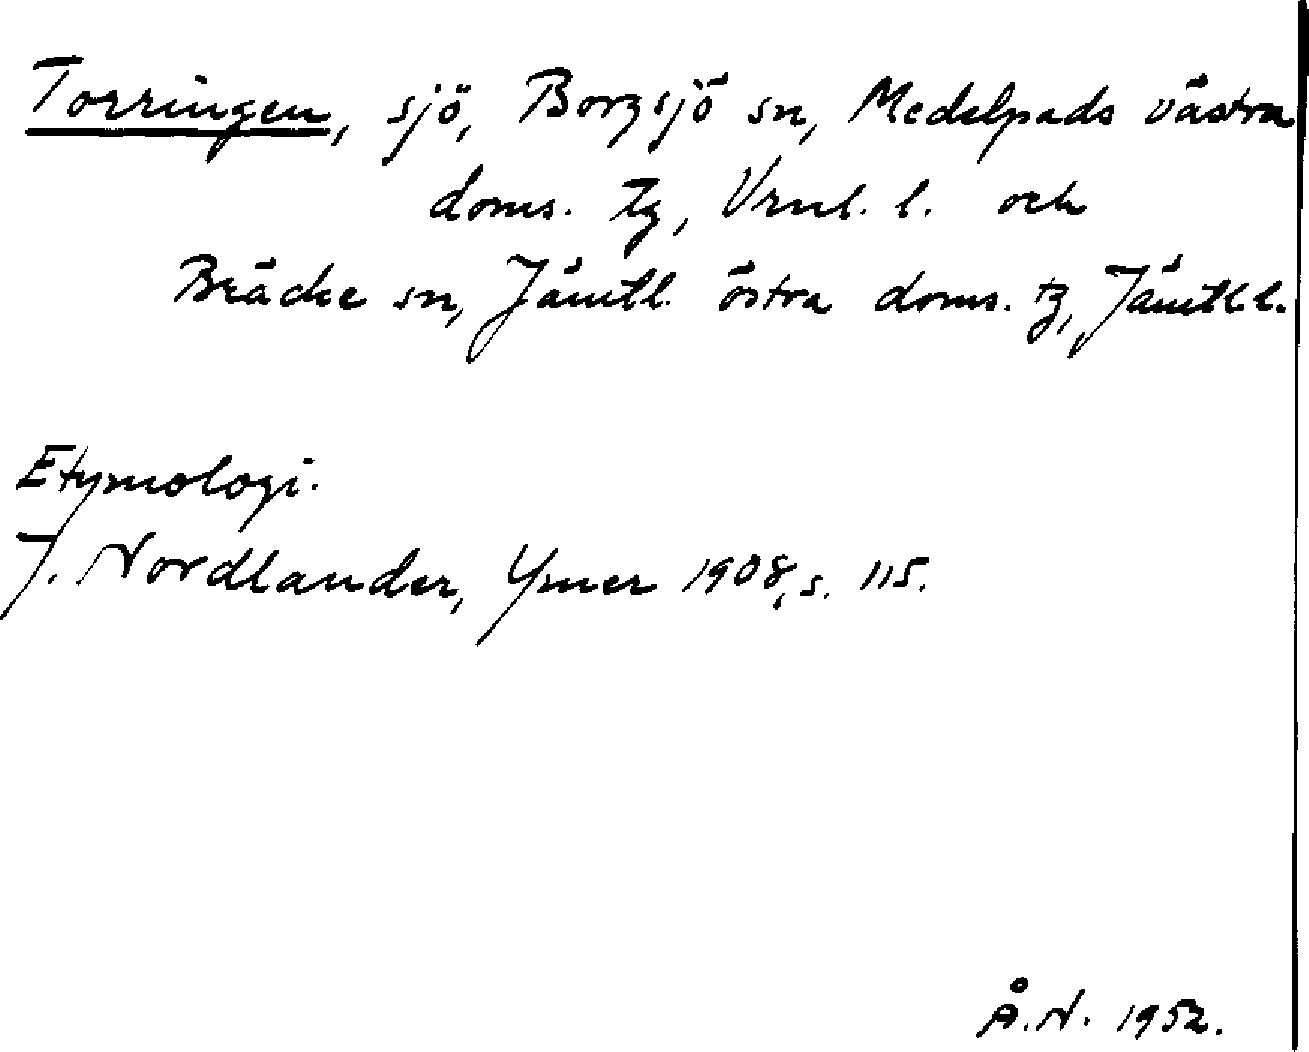 Torringen, sjö, Borgsjö sn, Medelpads västra
doms. tg, Vrnl. l. och
Bräcke sn, Jämtl. östra doms. tg, Jämtl. l.
Etymologi.
J. Nordlander, Ymer 1908, s. 115.
Å.N. 1952.